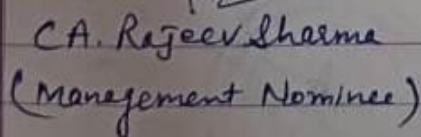 CA. Rajeev Sharma
(Management Nominee)